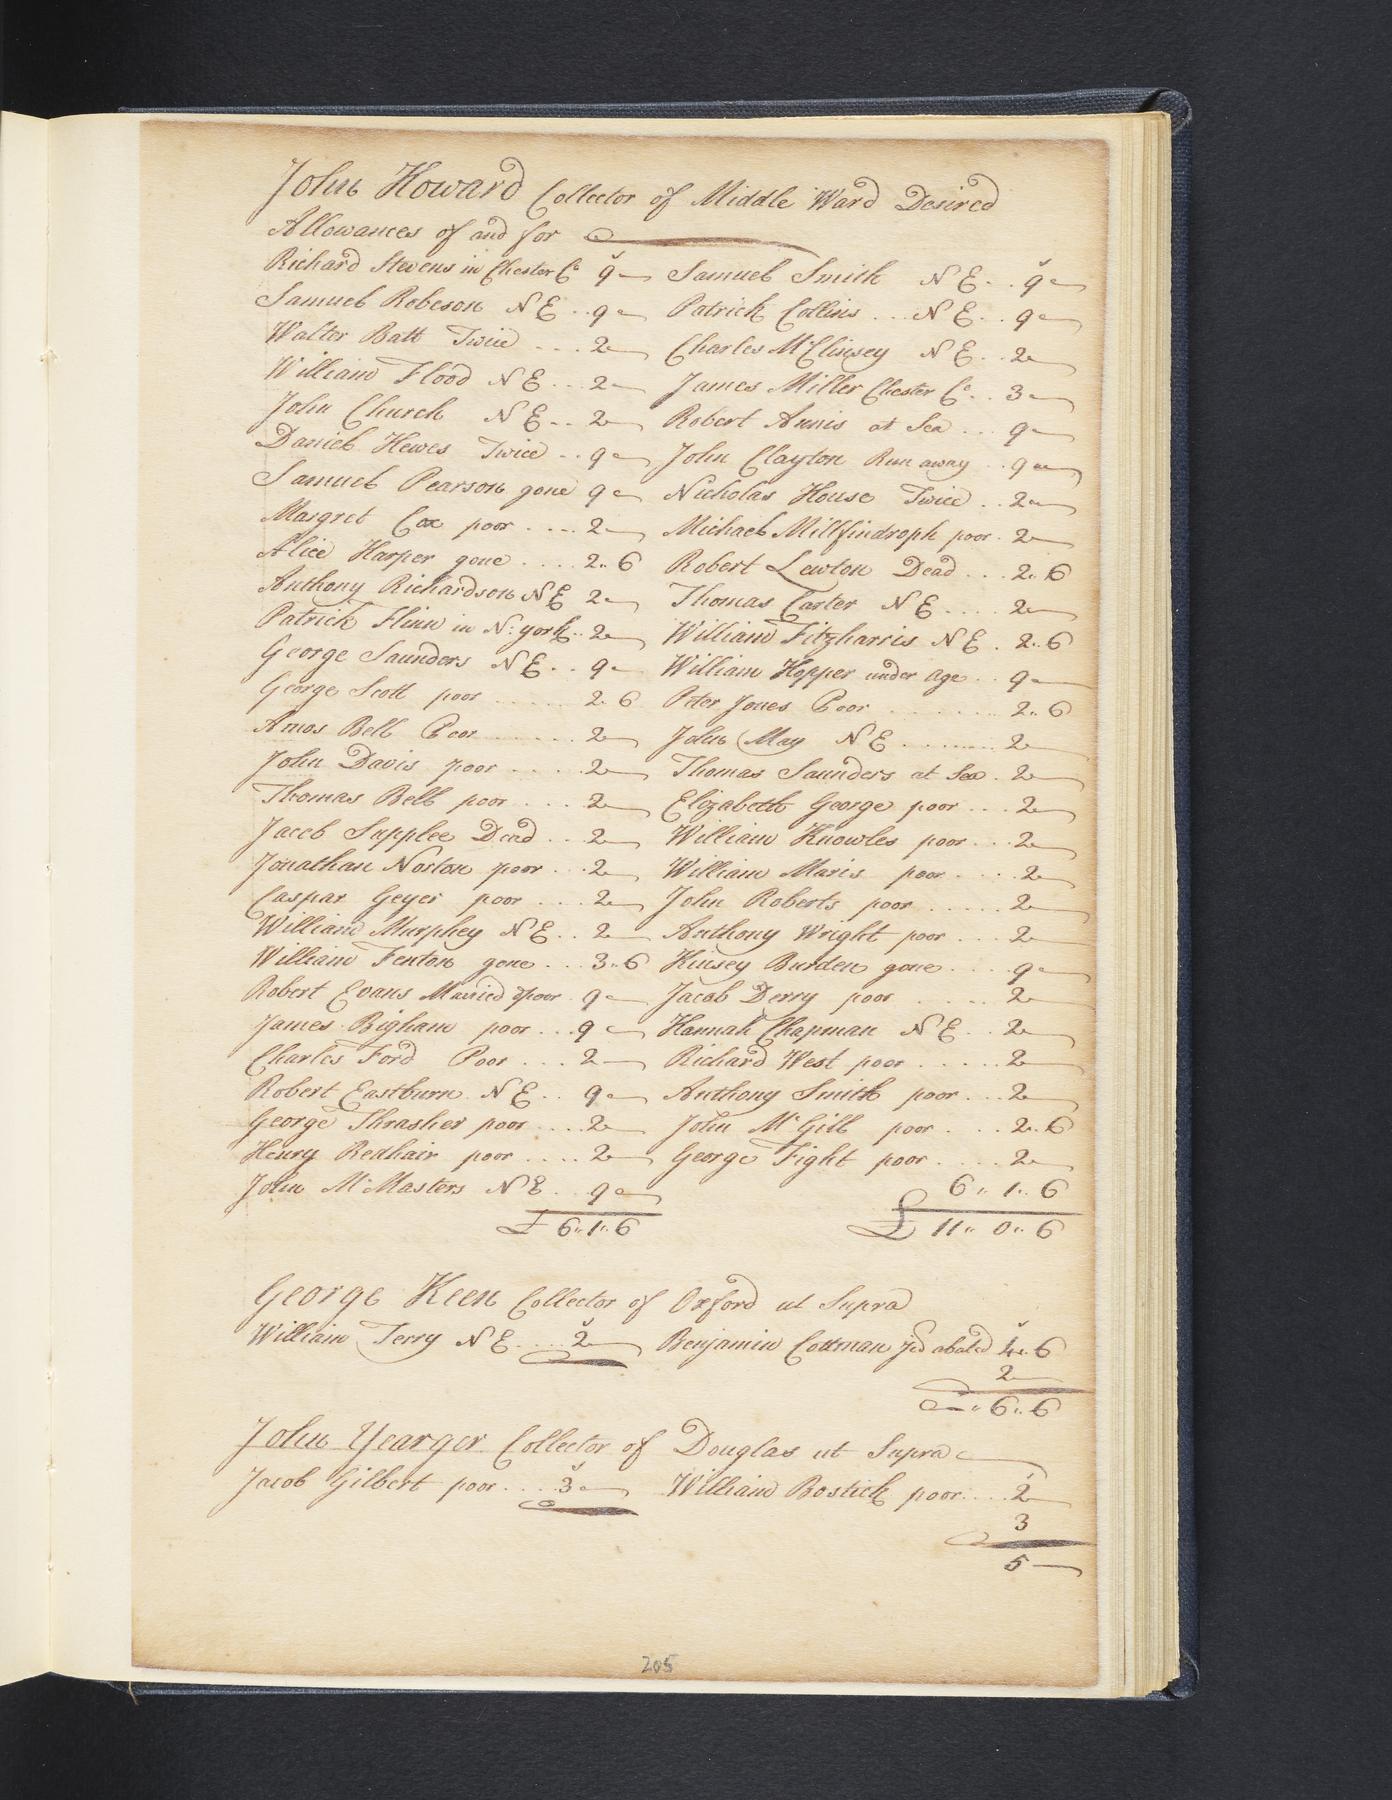 John Howard Collector of Middle Ward Desired
Allowances of and for
Richard Stevens in Chester Co 9— Samuel Smith N E . . 9—
Samuel Robeson N E . . 9— Patrick Collins . . . N E . . 9—
Walter Batt Twice . . . 2— Charles McClinsey N E . . 2—
William Flood N E . . . 2— James Miller Chester Co . . 3—
John Church N E . . 2— Robert Annis at Sea . . . 9—
Daniel Hewes Twice . . 9— John Clayton Run away . . 9—
Samuel Pearson gone 9— Nicholas House Twice . . 2—
Margret Cox poor . . . . 2— Michael Millfindroph poor . 2—
Alice Harper gone . . . . 2 . . 6 Robert Lewton Dead . . . 2 . . 6
Anthony Richardson N E 2— Thomas Carter N E . . . . 2—
Patrick Flinn in N: york . . 2— William Fitzharris N E . 2 . . 6
George Saunders N E . . 9— William Hopper under age . . 9—
George Scott poor . . . . . 2 . 6 Peter Jones Poor . . . . . . . 2 . . 6
Amos Bell Poor . . . . . . 2— John May N E . . . . . . . 2—
John Davis poor . . . . . 2— Thomas Saunders at Sea . 2—
Thomas Bell poor . . . . 2— Elizabeth George poor . . . 2—
Jacob Supplee Dead . . . 2— William Knowles poor . . . 2—
Jonathan Norton poor . . . 2— William Maris poor . . . . 2—
Caspar Geyer poor . . . 2— John Roberts poor . . . . . 2—
William Murphey N E . . 2— Anthony Wright poor . . . 2—
William Fenton gone . . . 3 . . 6 Kinsey Burden gone . . . . 9—
Robert Evans Married & poor . 9— Jacob Derry poor . . . . . 2—
James Bigham poor . . . 9— Hannah Chapman N E . . 2—
Charles Ford Poor . . . 2— Richard West poor . . . . . 2—
Robert Eastburn N E . . 9— Anthony Smith poor . . . 2—
George Thrasher poor . . . . 2— John McGill poor . . . . 2 . . 6
Henry Redhair poor . . . . 2— George Fight poor . . . . 2—
John McMasters N E . . 9— 6 . . 1 . . 6
£ 6 . . 1 . . 6 £ 11 . . 0 . . 6
George Keen Collector of Oxford ut Supra
William Terry N E . . . . 2— Benjamin Cottman abated 4 . . 6
2—
— . . 6 . . 6
John Yearger Collector of Douglas ut Supra
Jacob Gilbert poor . . . . 3— William Bostick poor . . . . 2—
3
5—
205